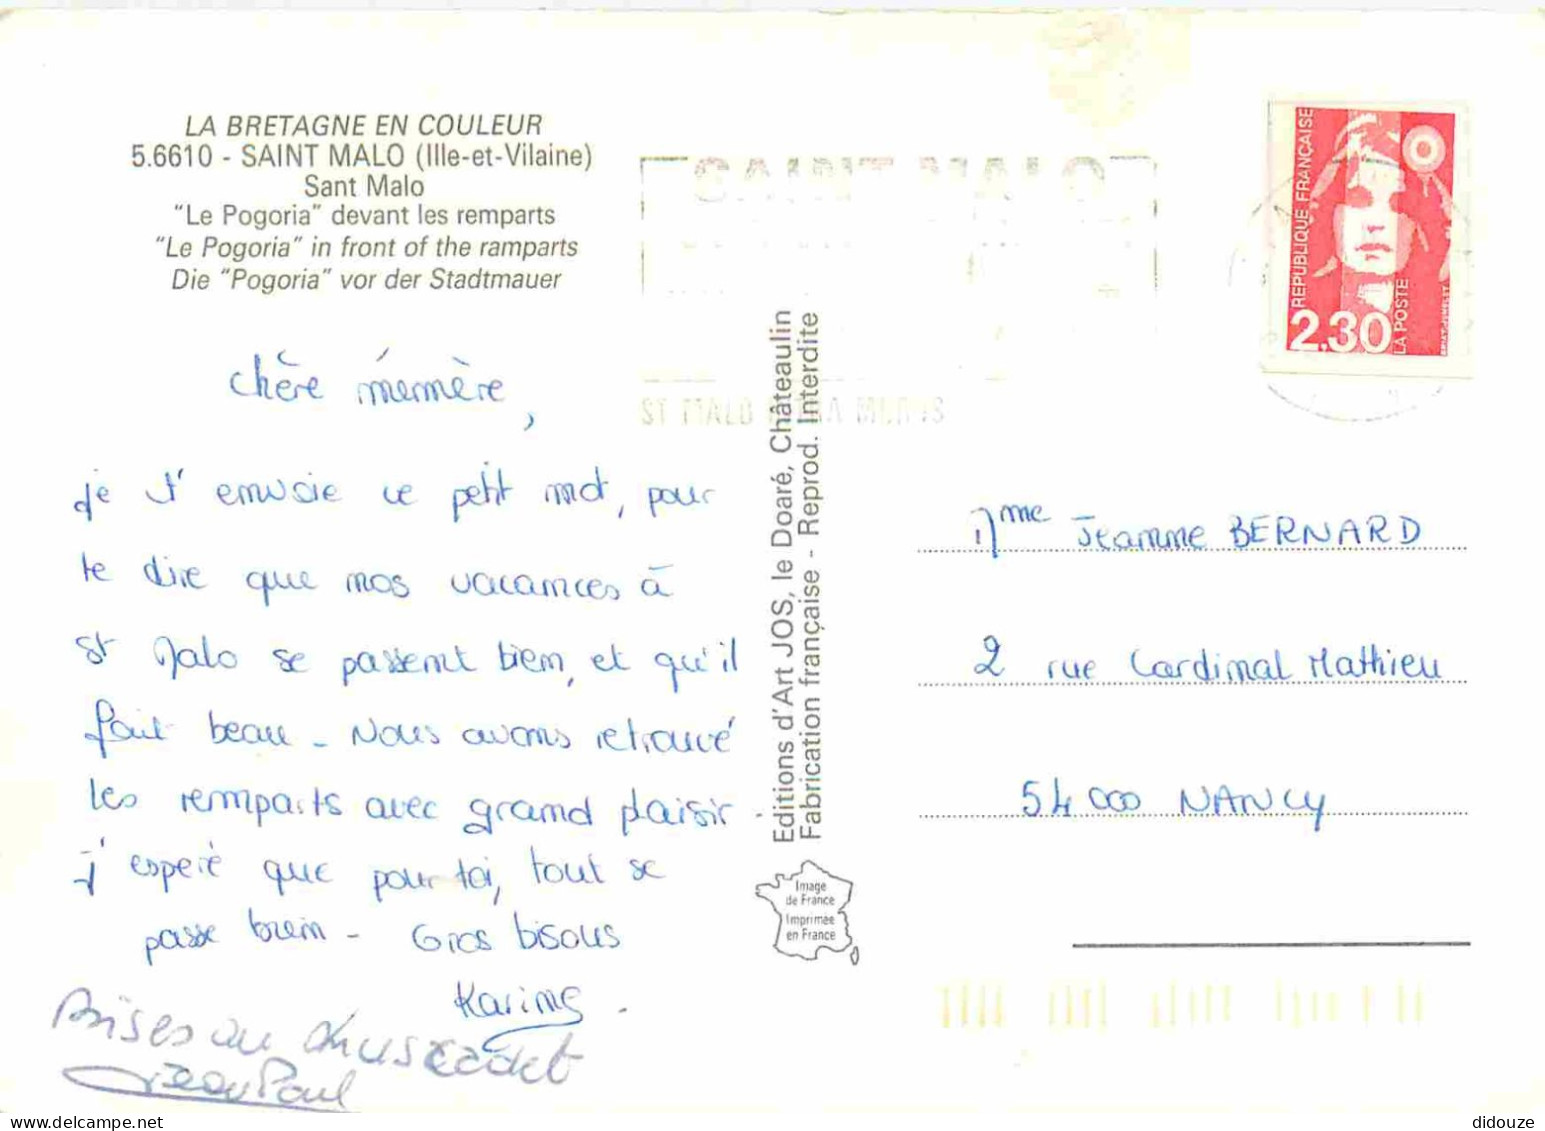 LA BRETAGNE EN COULEUR
5.6610 - SAINT MALO (Ille-et-Vilaine)
Sant Malo
"Le Pogoria" devant les remparts
"Le Pogoria" in front of the ramparts
Die "Pogoria" vor der Stadtmauer
Chère mémère,
je t'envoie ce petit mot, pour
te dire que nos vacances à
St Malo se passent bien, et qu'il
fait beau - Nous avons retrouvé
les remparts avec grand plaisir -
J'espère que pour toi, tout se
passe bien - Gros bisous
Karine.
Bises au Muscadet
Jean Paul
Editions d'Art JOS, le Doaré, Châteaulin
Fabrication française - Reprod. Interdite
Image
de France
Imprimée
en France
SAINT MALO
ST MALO INTRA MUROS
REPUBLIQUE FRANÇAISE
2,30
LA POSTE
Mme Jeanne BERNARD
2 rue Cardinal Mathieu
54 000 NANCY
didouze